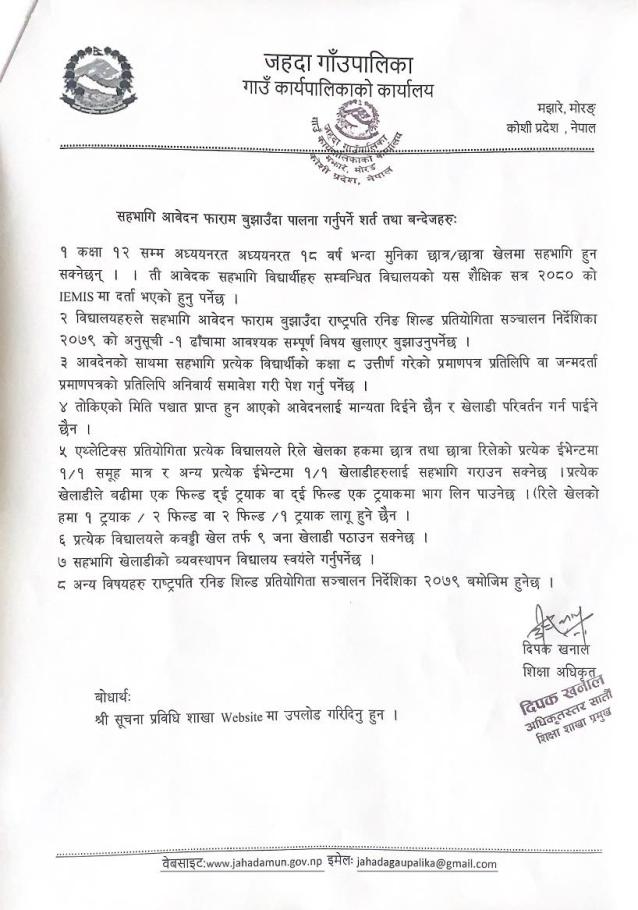 जहदा गाँउपालिका
गाउँ कार्यपालिकाको कार्यालय
मझारे, मोरङ्
कोशी प्रदेश , नेपाल
जहदा गाउँपालिका
गाउँ कार्यपालिकाको कार्यालय
मझारे, मोरङ
कोशी प्रदेश, नेपाल
सहभागि आवेदन फाराम बुझाउँदा पालना गर्नुपर्ने शर्त तथा बन्देजहरुः
१ कक्षा १२ सम्म अध्ययनरत अध्ययनरत १८ वर्ष भन्दा मुनिका छात्र/छात्रा खेलमा सहभागि हुन
सक्नेछन् । । ती आवेदक सहभागि विद्यार्थीहरु सम्बन्धित विद्यालयको यस शैक्षिक सत्र २०८० को
IEMIS मा दर्ता भएको हुनु पर्नेछ ।
२ विद्यालयहरुले सहभागि आवेदन फाराम बुझाउँदा राष्ट्रपति रनिङ शिल्ड प्रतियोगिता सञ्चालन निर्देशिका
२०७९ को अनुसूची -१ ढाँचामा आवश्यक सम्पूर्ण विषय खुलाएर बुझाउनुपर्नेछ ।
३ आवदेनको साथमा सहभागि प्रत्येक विद्यार्थीको कक्षा ८ उत्तीर्ण गरेको प्रमाणपत्र प्रतिलिपि वा जन्मदर्ता
प्रमाणपत्रको प्रतिलिपि अनिवार्य समावेश गरी पेश गर्नु पर्नेछ ।
४ तोकिएको मिति पश्चात प्राप्त हुन आएको आवेदनलाई मान्यता दिईने छैन र खेलाडी परिवर्तन गर्न पाईने
छैन ।
५ एथ्लेटिक्स प्रतियोगिता प्रत्येक विद्यालयले रिले खेलका हकमा छात्र तथा छात्रा रिलेको प्रत्येक ईभेन्टमा
१/१ समूह मात्र र अन्य प्रत्येक ईभेन्टमा १/१ खेलाडीहरुलाई सहभागि गराउन सक्नेछ ।प्रत्येक
खेलाडीले वढीमा एक फिल्ड दुई ट्रयाक वा दुई फिल्ड एक ट्रयाकमा भाग लिन पाउनेछ ।(रिले खेलको
हमा १ ट्रयाक / २ फिल्ड वा २ फिल्ड /१ ट्रयाक लागू हुने छैन ।
६ प्रत्येक विद्यालयले कवड्डी खेल तर्फ ९ जना खेलाडी पठाउन सक्नेछ ।
७ सहभागि खेलाडीको व्यवस्थापन विद्यालय स्वयंले गर्नुपर्नेछ ।
८ अन्य विषयहरु राष्ट्रपति रनिङ शिल्ड प्रतियोगिता सञ्चालन निर्देशिका २०७९ बमोजिम हुनेछ ।
दिपक खनाल
शिक्षा अधिकृत
दिपक खनाल
अधिकृतस्तर सातौं
शिक्षा शाखा प्रमुख
बोधार्थः
श्री सूचना प्रविधि शाखा Website मा उपलोड गरिदिनु हुन ।
वेबसाइट:www.jahadamun.gov.np इमेलः jahadagaupalika@gmail.com